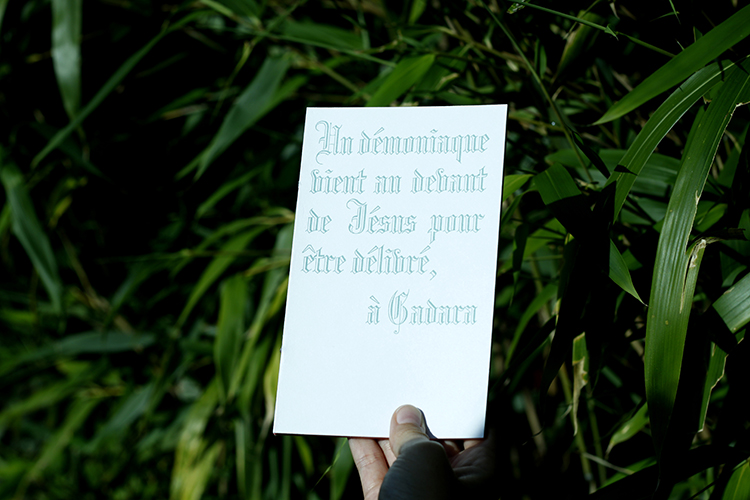 Un démoniaque
vient au devant
de Jésus pour
être délivré,
à Gadara